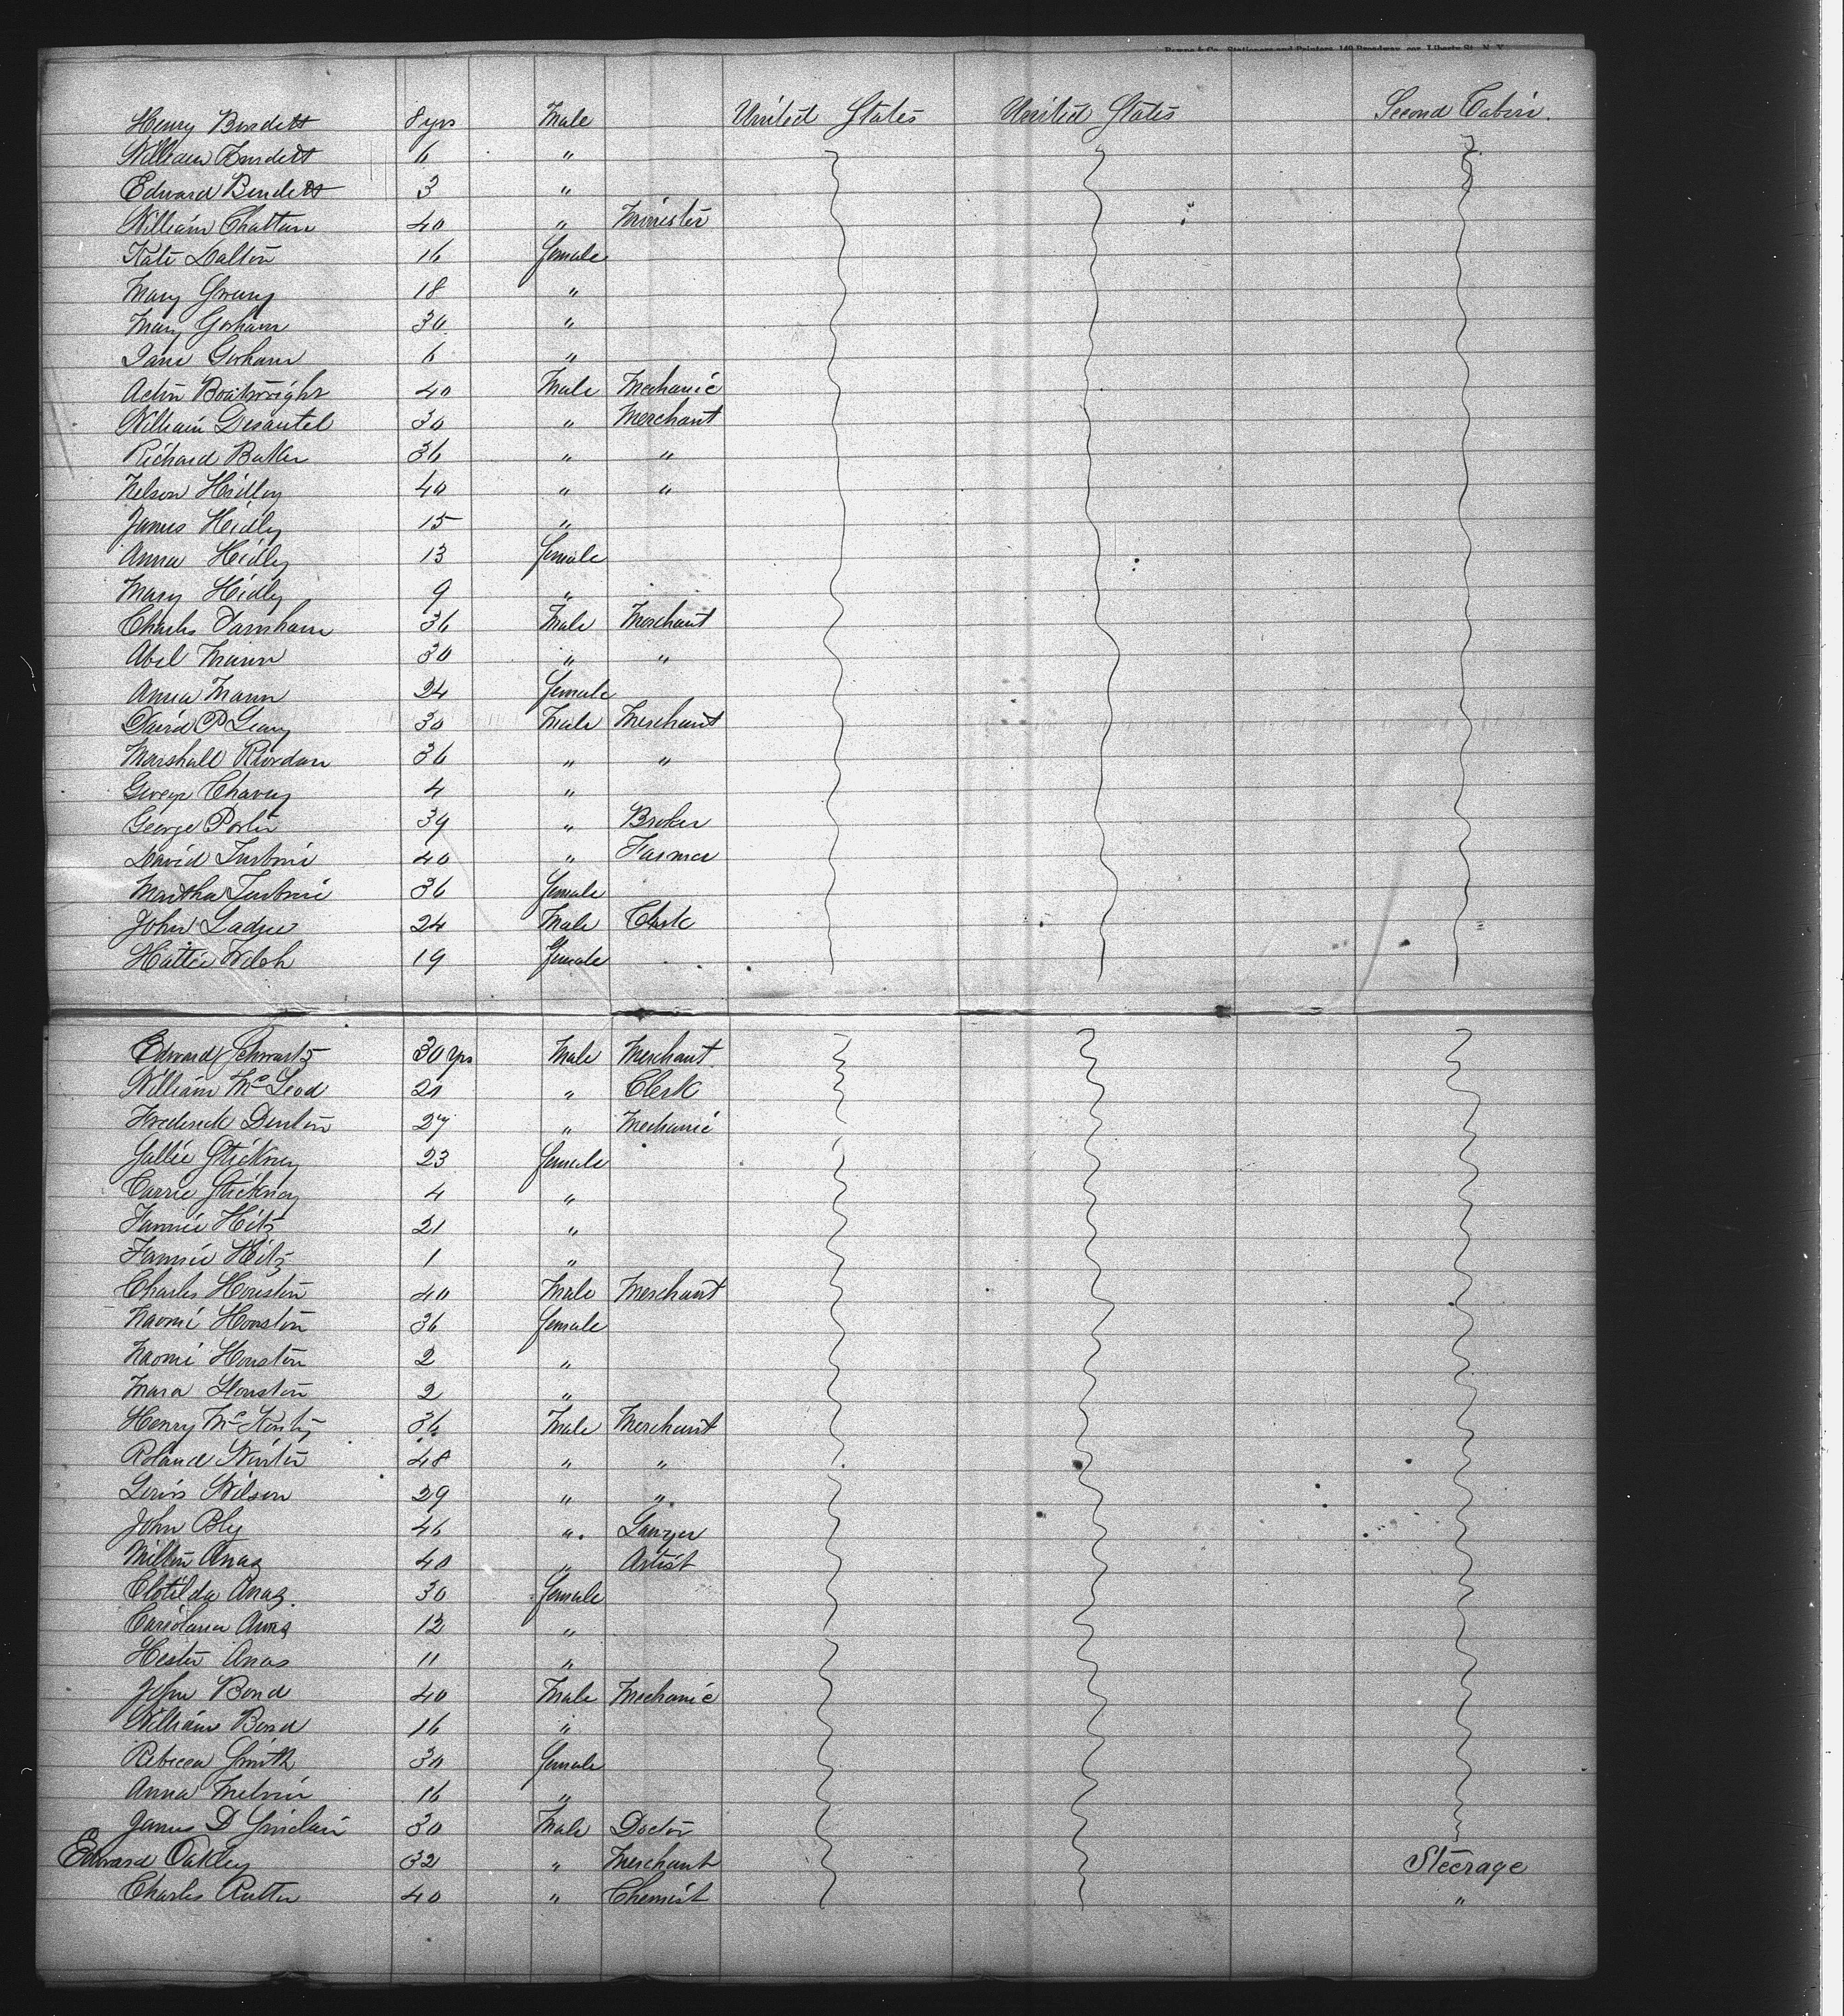 & Co., Stationers and Printers, 149 Broadway, cor. Liberty St., N. Y.
Henry Burdett 8 yrs Male United States United States Second Cabin.
William Burdett 6 "
Edward Burdett 3 "
William Chattan 40 " Minister
Kate Dalton 16 female
Mary 18 "
Mary Gorham 30 "
Jane Gorham 6 "
Boatwright 40 Male Mechanic
William Desautel 30 " Merchant
Richard Butler 36 " "
Nelson Hidley 40 " "
James Hidly 15 "
Anna Hidly 13 female
Mary Hidly 9 "
Charles Farnham 36 Male Merchant
Abel Mann 30 " "
Anna Mann 24 female
David P Leary 30 Male Merchant
Marshall Riordan 36 " "
4 "
George Porter 39 " Broker
David 40 " Farmer
Martha 36 female
John Ladue 24 Male Clerk
Hattie Welch 19 female
Edward Schwartz 30 yrs Male Merchant
William McLeod 20 " Clerk
Frederick Denton 27 " Mechanic
Sallie Stickney 23 female
Carrie Stickney 4 "
Fannie Hitz 21 "
Fannie Hitz 1 "
Charles Houston 40 Male Merchant
Naomi Houston 36 female
Naomi Houston 2 "
Mara Houston 2 "
Henry 36 Male Merchant
Roland Winter 48 " "
Louis Wilson 29 " "
John Bly 46 " Lawyer
Milton Anas 40 " Artist
Clotilda Anas. 30 female
Anas 12 "
Hester Anas 11 "
John Bond 40 Male Mechanic
William Bond 16 "
Rebecca Smith 30 female
Anna Melvin 16 "
James D Sinclair 30 Male Doctor
Edward Oakley 32 " Merchant Steerage
Charles Rutter 40 " Chemist "